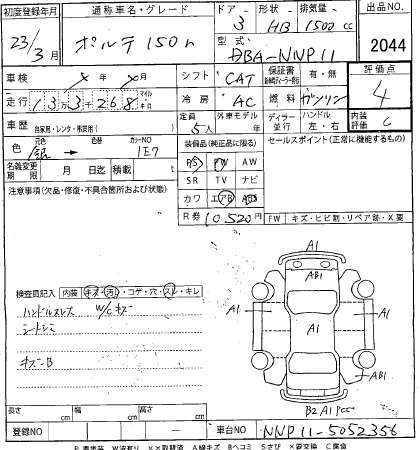 初度登録年月 通称車名・グレード ドア 形状 排気量 出品NO
23/3月 ポルテ 150r 3 HB 1500cc
型式 DBA-NNP11 2044
車検 X年 X月 シフト CAT 保証書 有・無 評価点
走行 133268 マイル キロ 冷房 AC 燃料 ガソリン 4
車歴 自家用・レンタ・事業用( ) 定員 5人 外車モデル 年 ディラー 並行 ハンドル 左・右 内装評価 C
色 元色 銀 → 色替 カラーNO 1E7 装備品(純正品に限る) セールスポイント(正常に機能するもの)
名義変更期限 月 日迄 積載 t PS PW AW
注意事項(欠品・修復・不具合箇所および状態) SR TV ナビ
カワ エアB ABS
R券 10520円 FW キズ・ヒビ割・リペア跡・X要
A1
AB1
検査員記入 内装 キズ・汚・コゲ・穴・スレ・キレ
ハンドルスレ W/Cキズ
シートシミ
A1 A1 A1
キズ・B
AB1
B2 A1 Pcc
長さ cm 幅 cm 高さ cm
登録NO — 車台NO NNP11-5052356
P 要塗装 W波有り XX取替済 A線キズ Bヘコミ Sさび X要交換 C腐食